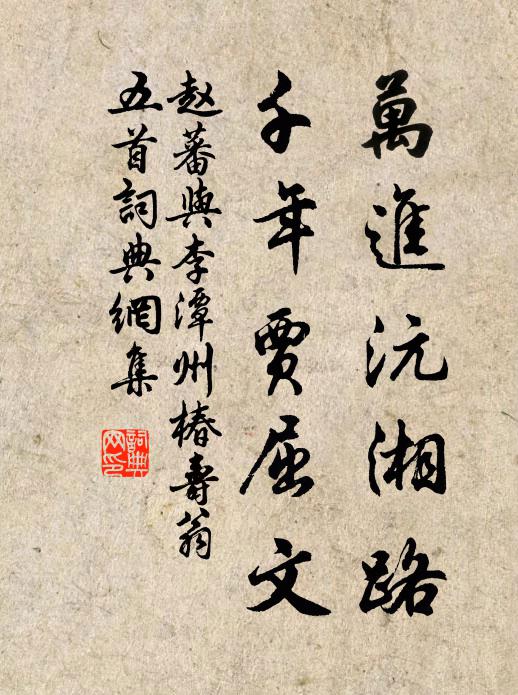 萬進沅湘路
千年賈屈文
赵蕃與李潭州椿壽翁
五首詞典網集
詞典
网印